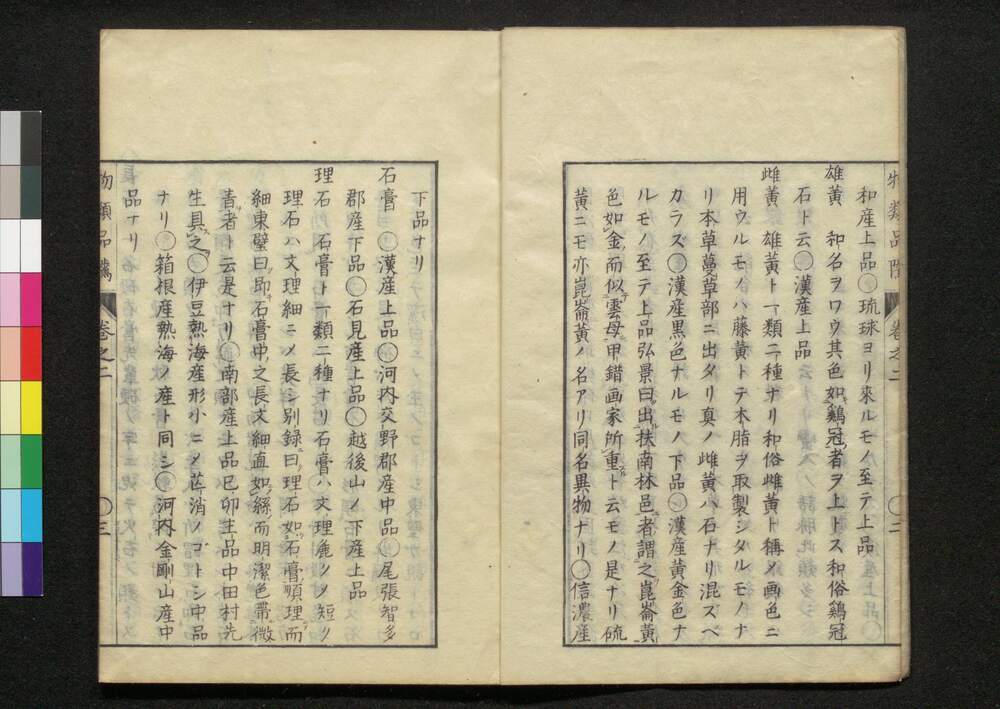 物類品隲 卷之二 〇二
和産上品〇琉球ヨリ來ルモノ至テ上品
雄黄 和名ヲワウ其色如鷄冠者ヲ上トス和俗鷄冠
石ト云〇漢産上品
雌黄 雄黄ト一類二種ナリ和俗雌黄ト稱〆画色ニ
用ウルモノハ藤黄トテ木脂ヲ取製シタルモノナ
リ本草蔓草部ニ出タリ真ノ雌黄ハ石ナリ混ズベ
カラズ〇漢産黒色ナルモノ下品〇漢産黄金色ナ
ルモノ至テ上品弘景曰出扶南林邑者謂之崑崙黄
色如金而似雲母甲錯画家所重ト云モノ是ナリ硫
黄ニモ亦崑崙黄ノ名アリ同名異物ナリ〇信濃産
下品ナリ
石膏 〇漢産上品〇河内交野郡産中品〇尾張智多
郡産下品〇石見産上品〇越後山ノ下産上品
理石 石膏ト一類二種ナリ石膏ハ文理麁ノ短ク
理石ハ文理細ニ〆長シ別録曰理石如石膏順理而
細東璧曰即石膏中之長文細直如絲而明潔色帶微
青者ト云是ナリ〇南部産上品已卯主品中田村先
生具之〇伊豆熱海産形小ニ〆芒消ノコトシ中品
ナリ〇箱根産熱海ノ産ト同シ〇河内金剛山産中
品ナリ
物類品隲 卷之二 〇三